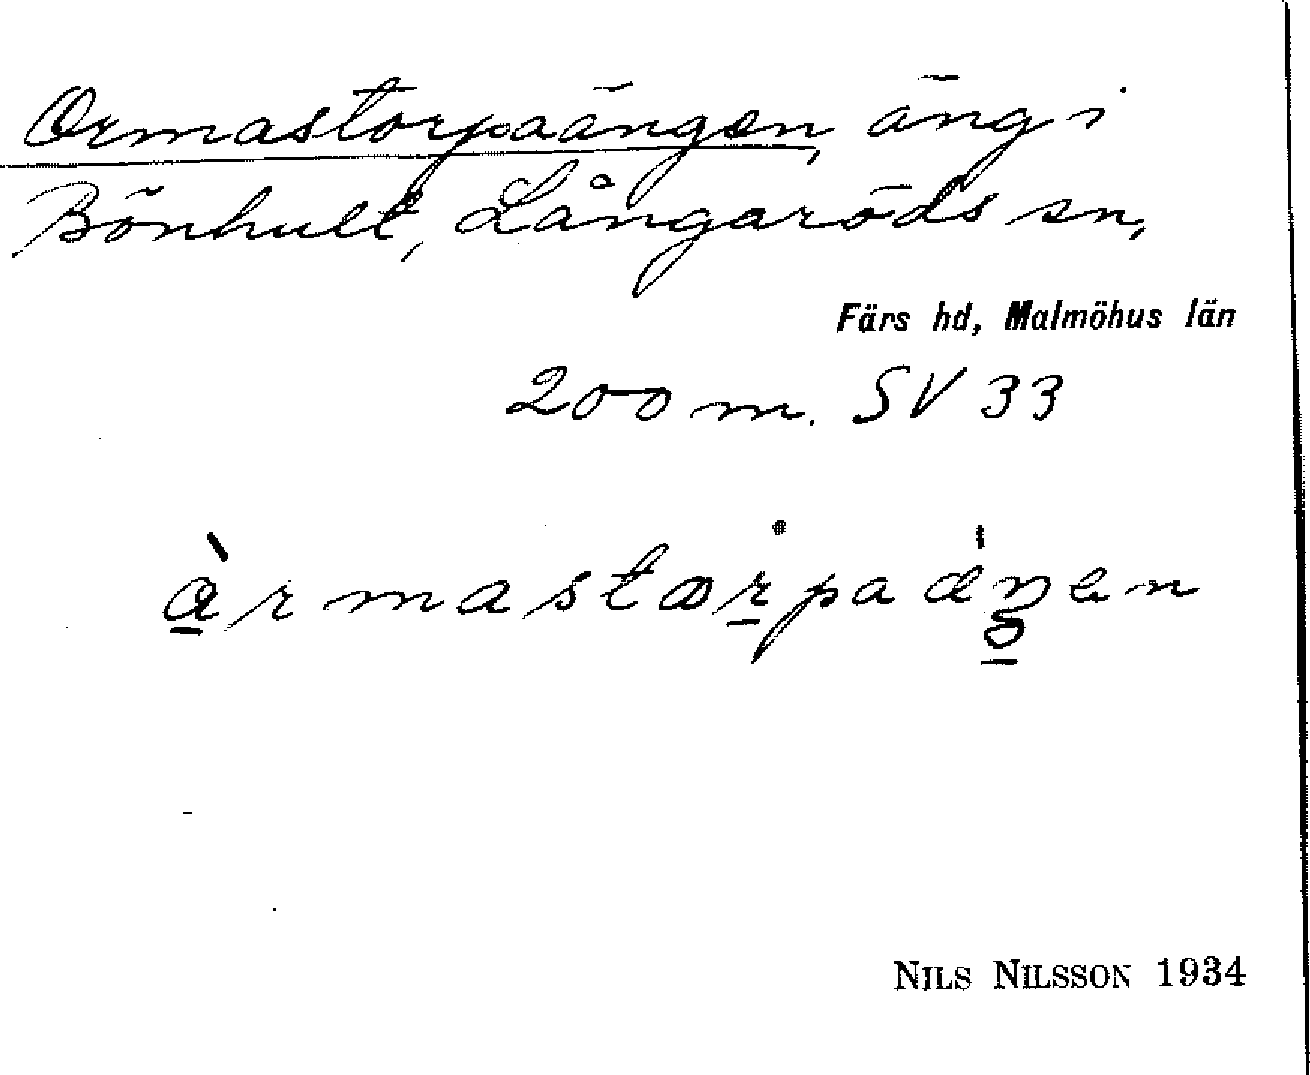 Ormastorpaängen, äng i
Bönhult, Långaröds sn,
Färs hd, Malmöhus län
200 m. SV 33
àrmastorpaängen
NILS NILSSON 1934